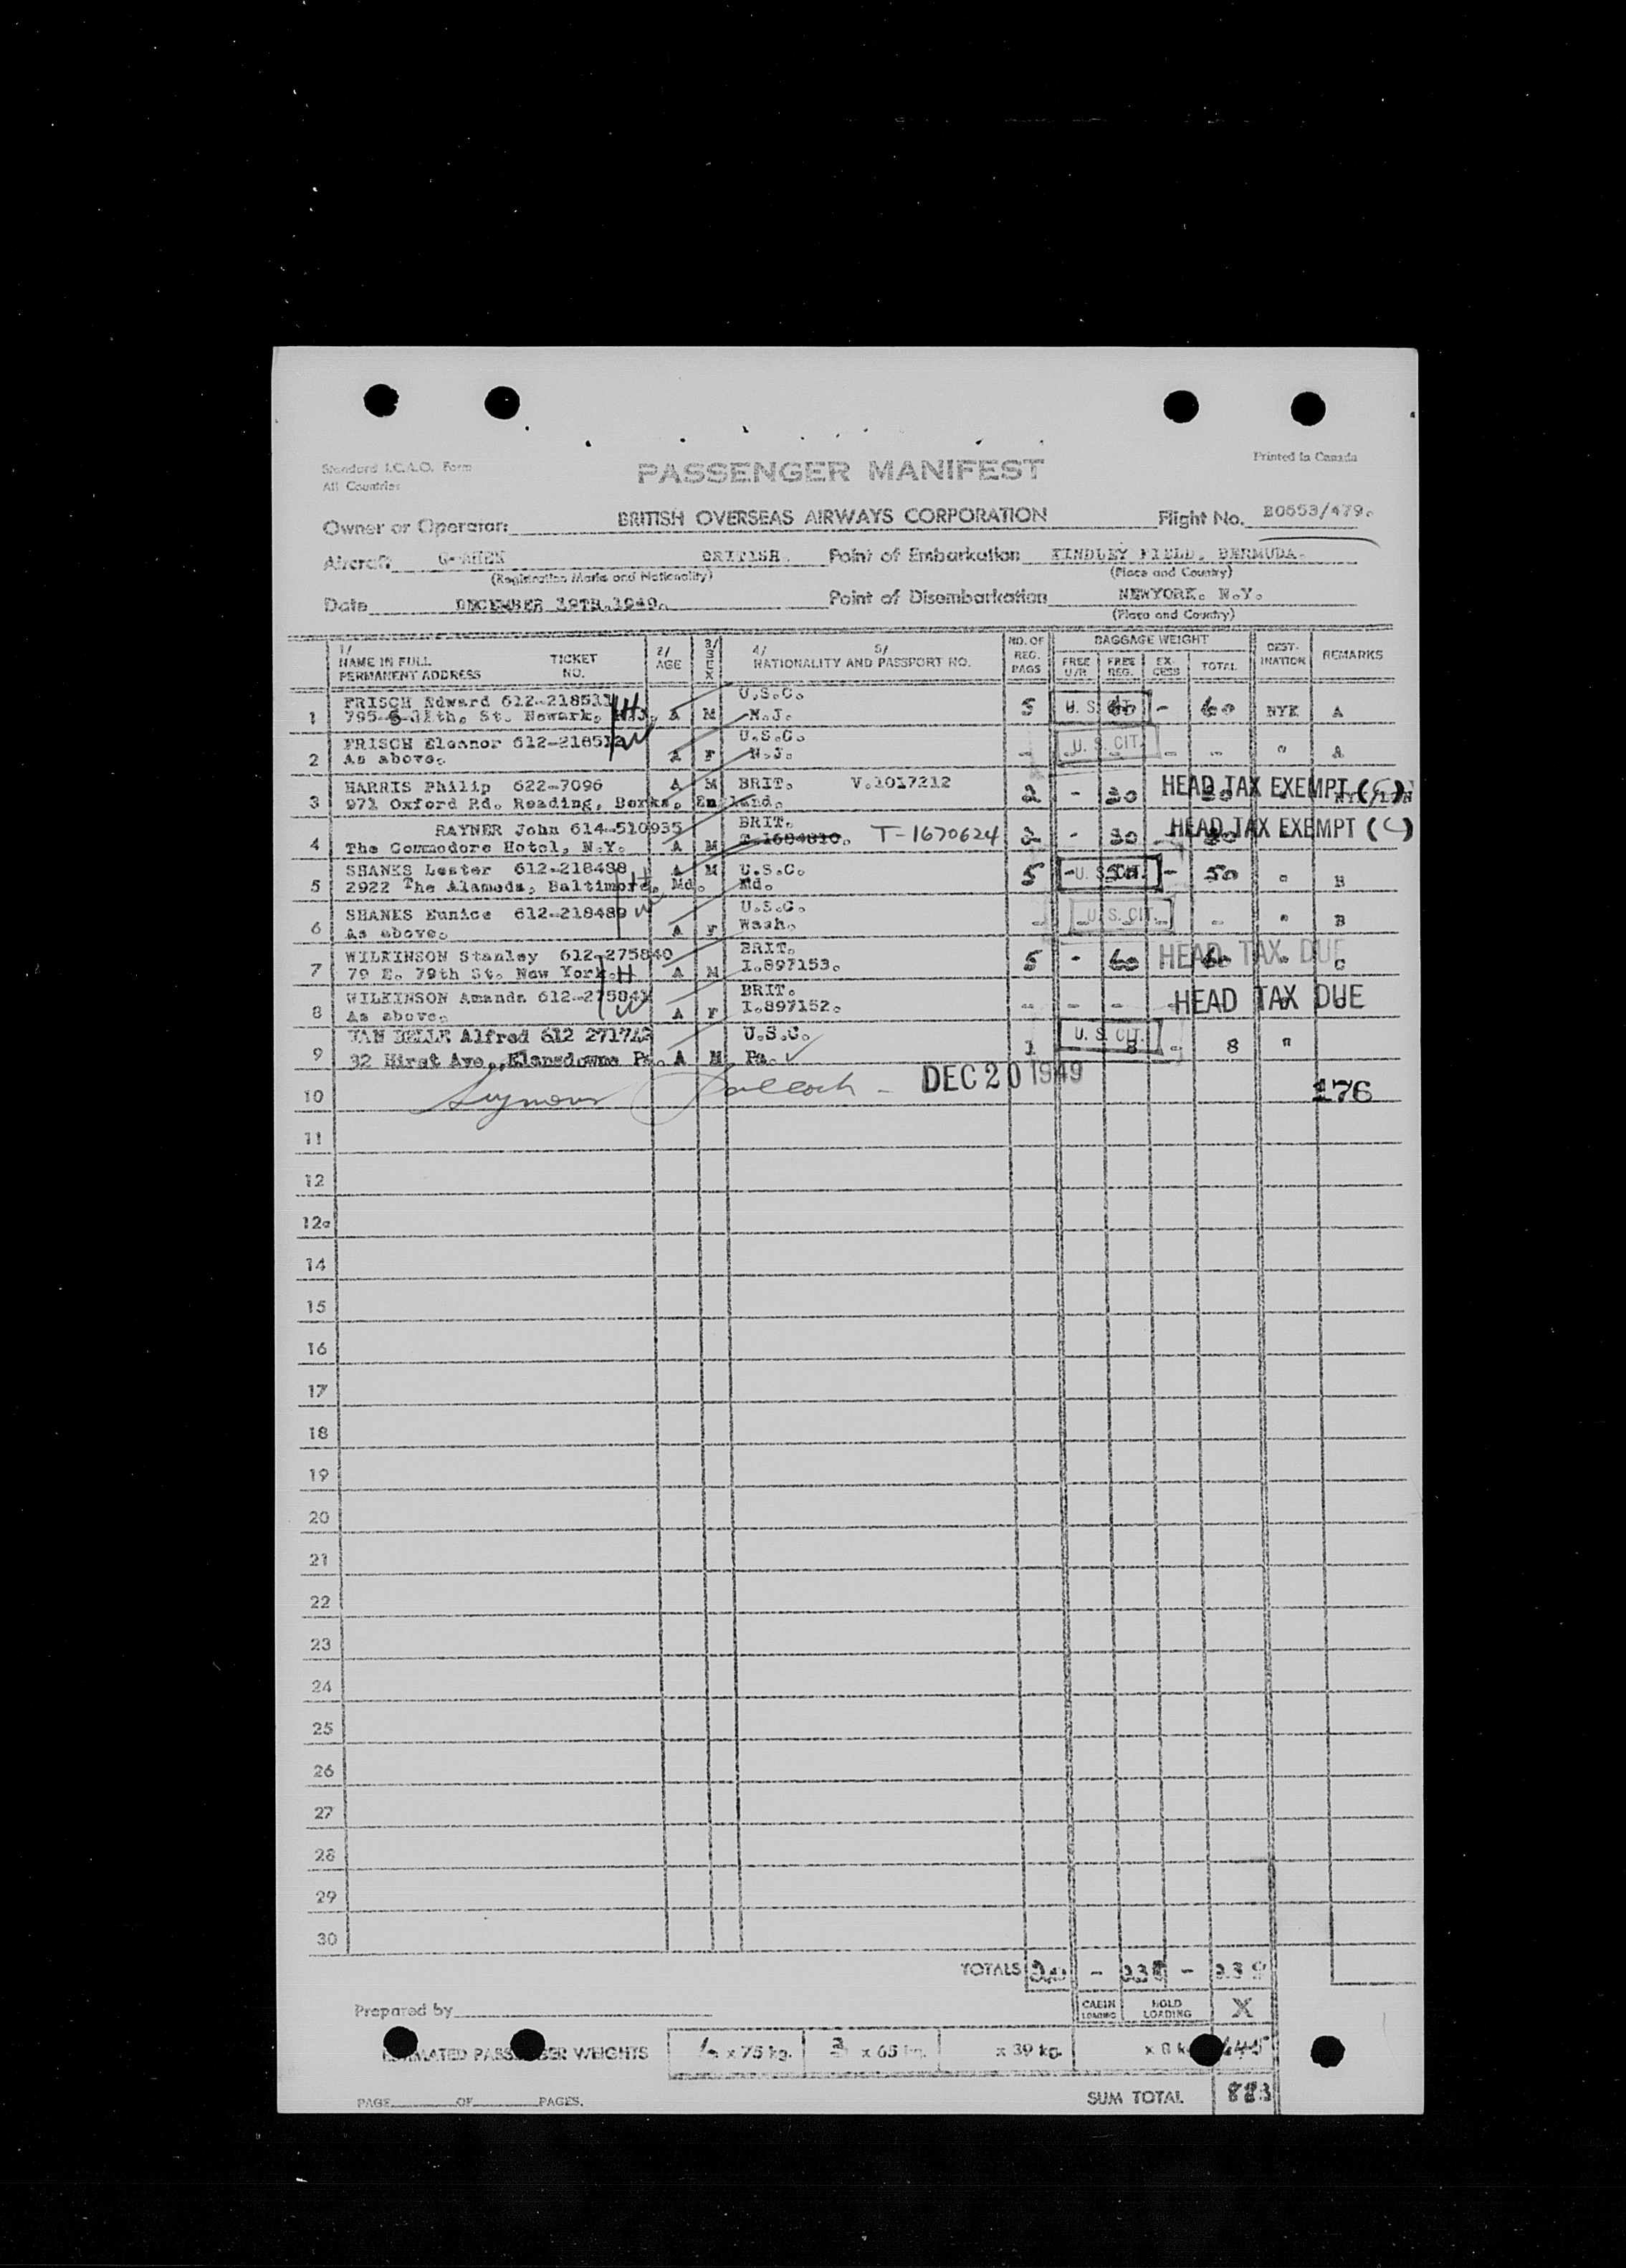 Standard I.C.A.O. Form
All Countries
PASSENGER MANIFEST
Printed in Canada
Owner or Operator: BRITISH OVERSEAS AIRWAYS CORPORATION Flight No. B0553/479.
Aircraft BRITISH. Point of Embarkation KINDLEY FIELD. BERMUDA.
(Registration Marks and Nationality) (Place and Country)
Date DECEMBER 19TH.1949. Point of Disembarkation NEWYORK. N.Y.
(Place and Country)
1/ NAME IN FULL PERMANENT ADDRESS TICKET NO. 2/ AGE 3/ SEX 4/ 5/ NATIONALITY AND PASSPORT NO. NO. OF REG. BAGS BAGGAGE WEIGHT FREE U/R FREE REG. EXCESS TOTAL DESTINATION REMARKS
FRISCH Edward 612-218511 U.S.C.
1 St. Newark, N.J. A M N.J. 5 U. S. CIT. 60 - 60 NYK A
FRISCH Eleanor 612-218512 U.S.C.
2 As above. A F N.J. - U. S. CIT. - - " A
HARRIS Philip 622-7096 A M BRIT. V.1017212
3 971 Oxford Rd. Reading, Berks. England. 2 - 30 HEAD TAX EXEMPT (C)
RAYNER John 614-510935 BRIT.
4 The Commodore Hotel, N.Y. A M T-1670624 2 - 30 - HEAD TAX EXEMPT (C)
SHANKS Lester 612-218488 A M U.S.C.
5 2922 The Alameda, Baltimore, Md. Md. 5 - U. S. CIT. 50 - 50 " B
SHANKS Eunice 612-218489 U.S.C.
6 As above. A F Wash. - U. S. CIT. - - " B
WILKINSON Stanley 612-275840 BRIT.
7 79 E. 79th St. New York. H A M I.897153. 5 - 60 HEAD TAX DUE 60 " C
WILKINSON Amanda 612-275841 BRIT.
8 As above. A F I.897152. - - - - HEAD TAX DUE
VAN BELLE Alfred 612 271742 U.S.C.
9 32 Hirst Ave., Elansdowne Pa. A M Pa. 1 U. S. CIT. 8 - 8 "
10 Seymour DEC 20 1949 176
11
12
12a
14
15
16
17
18
19
20
21
22
23
24
25
26
27
28
29
30
TOTALS 20 - 238 - 238
Prepared by CABIN LOADING HOLD LOADING X
ESTIMATED PASSENGER WEIGHTS 6 x 75 kg. 3 x 65 kg. x 39 kg. x 8 kg. 645
PAGE OF PAGES. SUM TOTAL 883